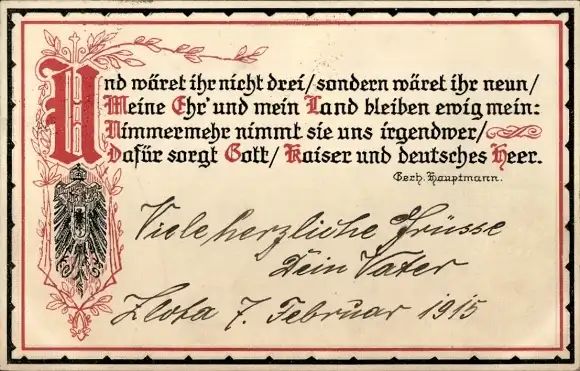 Und wäret ihr nicht drei/ sondern wäret ihr neun/
Meine Ehr' und mein Land bleiben ewig mein:
Nimmermehr nimmt sie uns irgendwer/
Dafür sorgt Gott/ Kaiser und deutsches Heer.
Gerh. Hauptmann.
Viele herzliche Grüsse
Dein Vater
Zlota 7. Februar 1915